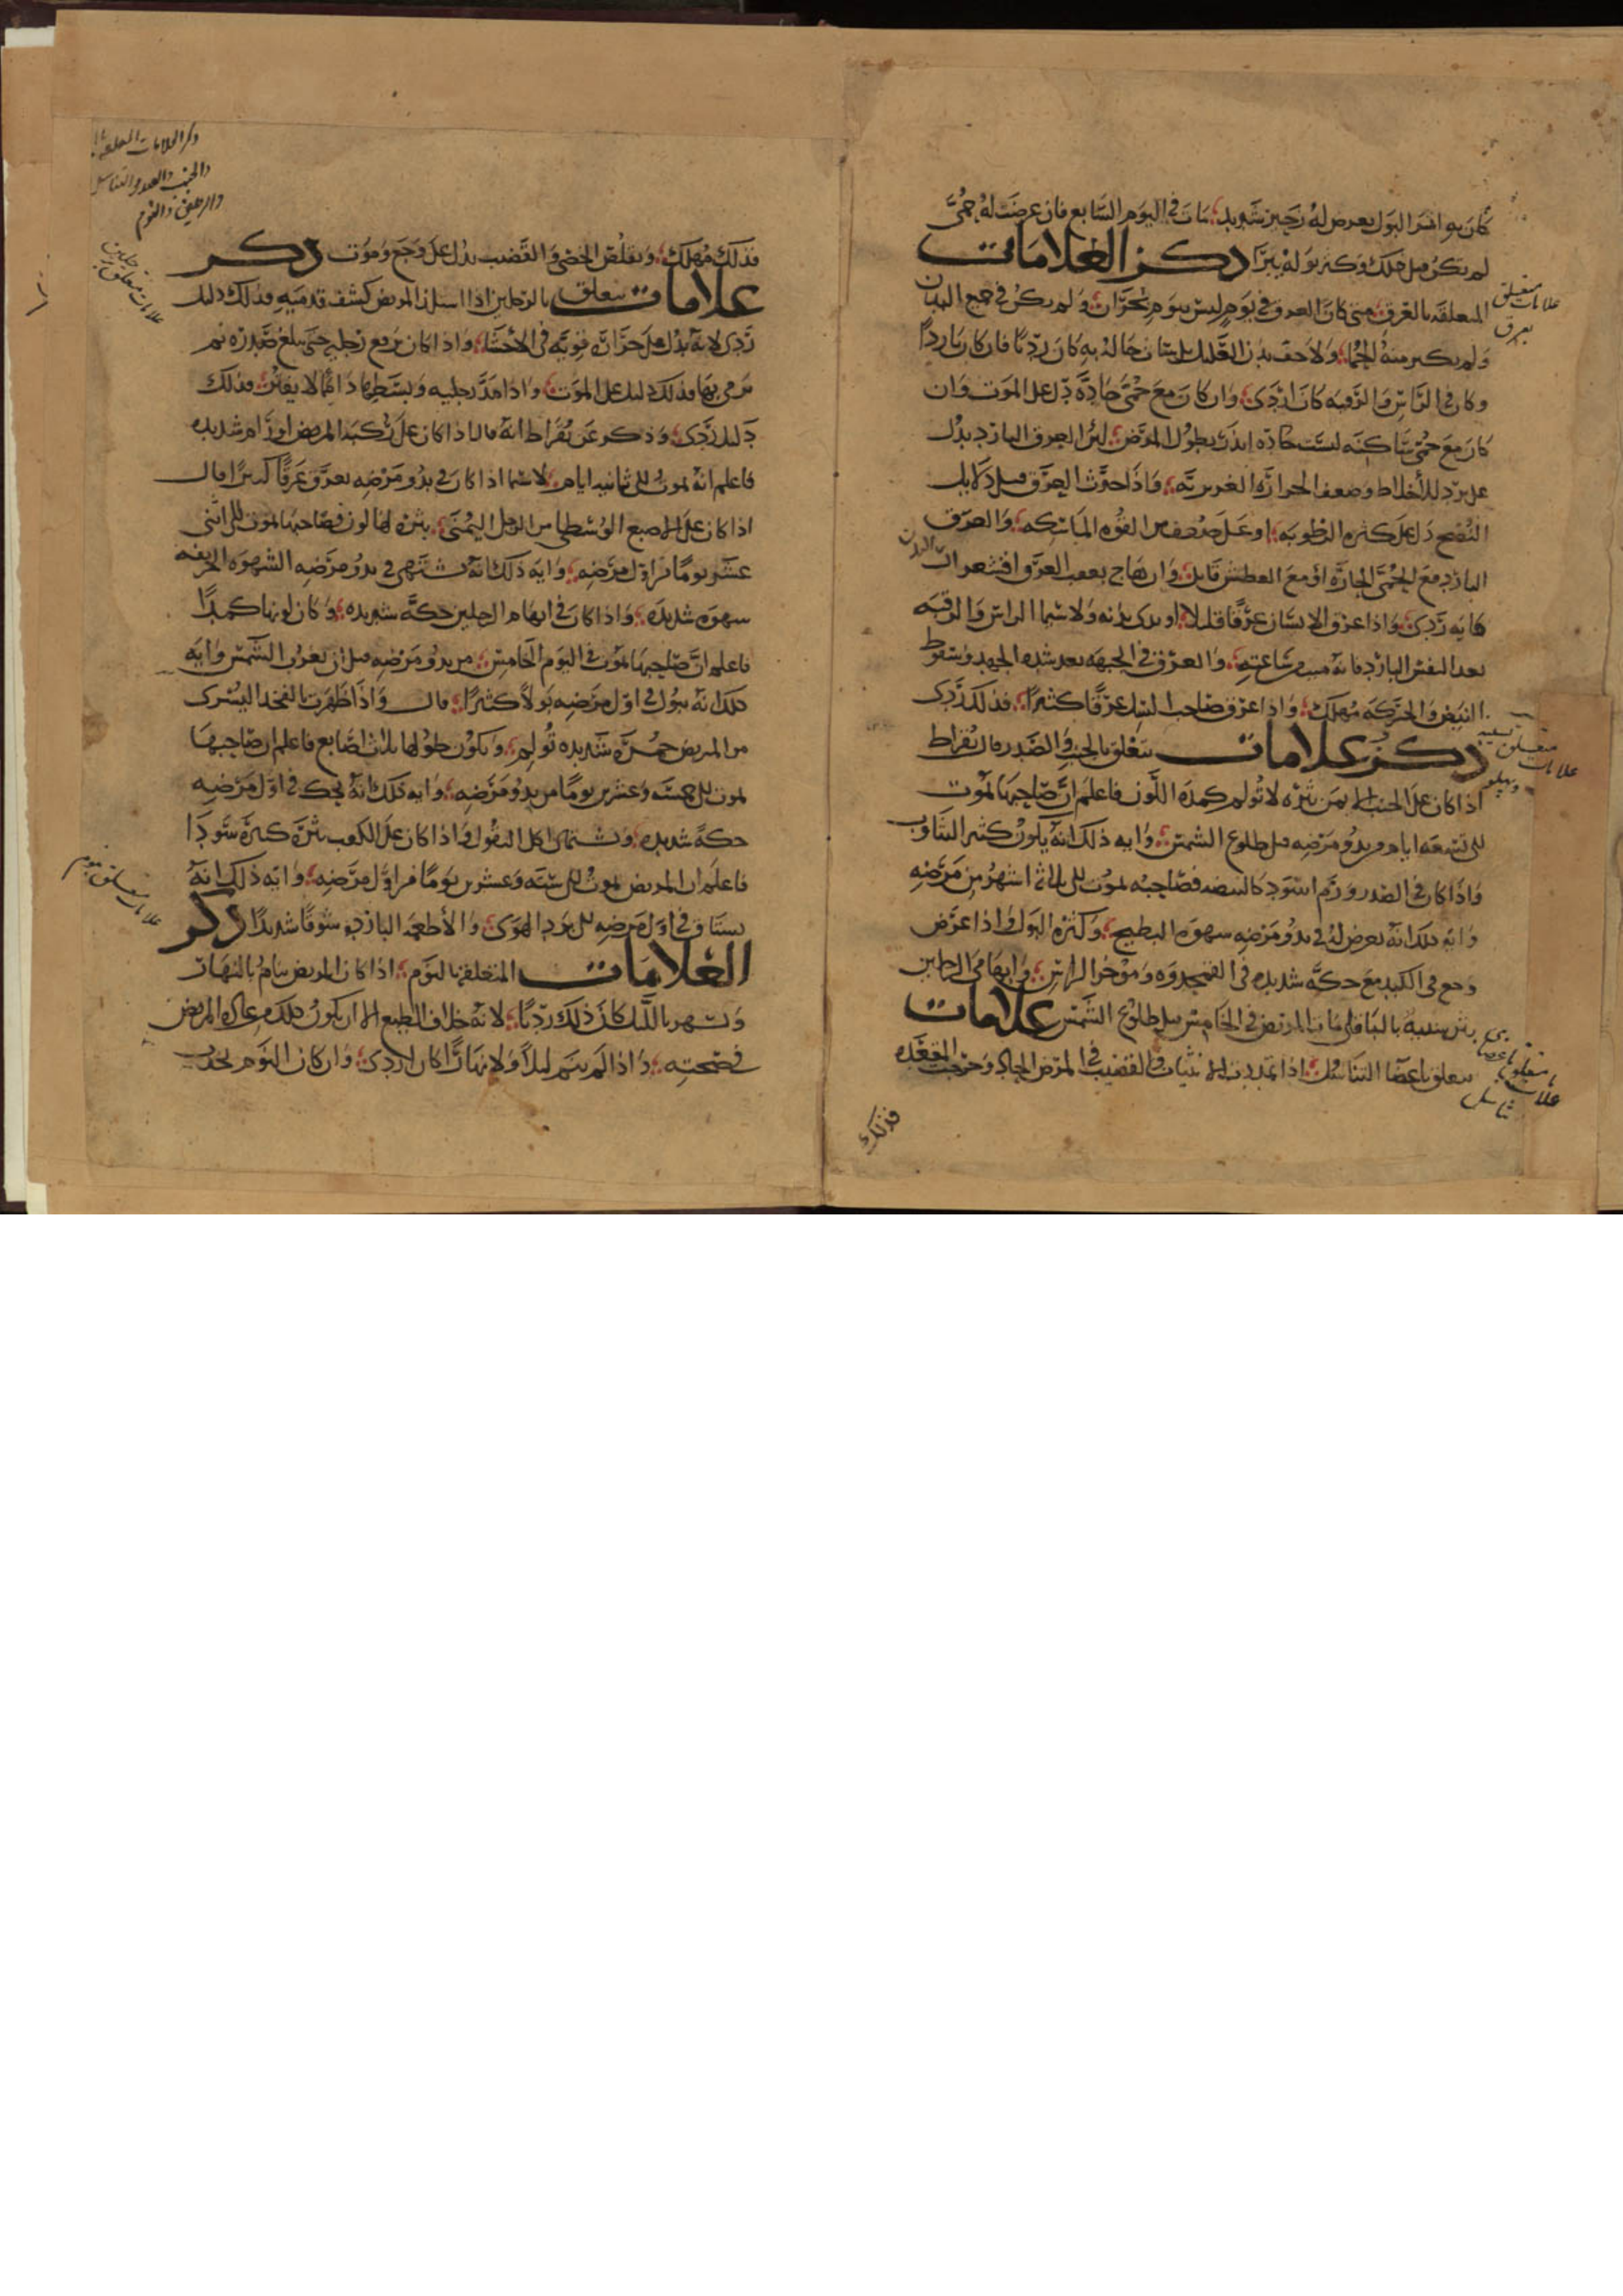 كان به اسر البول يعرض له زحير شديد مات في اليوم السابع فان عرضت له حمى
لم يكن قبل ذلك وكثر بوله برأ ذكر العلامات
المتعلقة بالعرق متى كان العرق في يوم ليس بيوم بحران ولم يكن في جميع البدن
ولم يكسر منه الحمى ولا خف بدن العليل بل ساءت حاله به كان رديا فان كان باردا
وكان في الراس والرقبة كان اردى وان كان مع حمى حادة دل على الموت وان
كان مع حمى ساكنة ليست حادة انذر بطول المرض لان العرق البارد يدل
على برد الاخلاط وضعف الحرارة الغريزية واذا حدث العرق قبل دلايل
النضج دل على كثرة الرطوبة او على ضعف من القوة الماسكة والعرق
البارد مع الحمى الحارة او مع العطش قاتل وان هاج بعقب العرق اقشعرار البدن
فانه ردى واذا عرق الانسان عرقا قليلا او ندى بدنه ولا سيما الراس والرقبة
بعد النفس البارد فانه ميت من ساعته والعرق في الجبهة بعد شدة الجهد وسقوط
النبض والحركة مهلك واذا عرق صاحب السل عرقا كثيرا فذلك ردى
ذكر علامات تتعلق بالجنب والصدر قال بقراط
اذا كان على الجنب الايمن بثرة لا تولم كمدة اللون فاعلم ان صاحبها يموت
الى تسعة ايام من بدو مرضه قبل طلوع الشمس واية ذلك انه يكون كثير التثاوب
واذا كان في الصدر ورم اسود كالبيضة فصاحبه يموت الى ثلاثة اشهر من مرضه
واية ذلك انه يعرض له في بدو مرضه شهوة البطيخ وكثرة البول واذا عرض
وجع في الكبد مع حكة شديدة في القمحدوة ومؤخر الراس وابهامي الرجلين
بثر شبيه بالباقلى مات المريض في الخامس قبل طلوع الشمس علامات
تتعلق باعضا التناسل اذا تمددت الانثيان والقضيب في المرض الحاد وخرجت المقعدة
فذلك
علامات متعلق
بعرق
علامات متعلق بسينه
وپهلو
علامات متعلق باعضاى
تناسل
ذكر العلامات المتعلقة
والجنب والصدر والتناسل
والرجلين والنوم
فذلك مهلك وتقلص الخصى والقضيب يدل على وجع وموت ذكر
علامات تتعلق بالرجلين اذا استلذ المريض كشف قدميه فذلك دليل
ردى لانه يدل على حرارة قوية في الاحشا واذا كان يرفع رجليه حتى يبلغ صدره ثم
يرمى بها فذلك دليل على الموت واذا مد رجليه وبسطها دايما لا يفتر فذلك
دليل ردى وذكر عن بقراط انه قال اذا كان على ركبة المريض اورام شديدة
فاعلم انه يموت الى ثمانية ايام لا سيما اذا كان في بدو مرضه يعرق عرقا كثيرا قال
اذا كان على الاصبع الوسطى من الرجل اليمنى بثرة لها لون فصاحبها يموت الى اثنى
عشر يوما من اول مرضه واية ذلك انه يشتهي في بدو مرضه الشهوة الحريفة
شهوة شديدة واذا كان في ابهام الرجلين حكة شديدة وكان لونها كمدا
فاعلم ان صاحبها يموت في اليوم الخامس من بدو مرضه قبل ان تغرب الشمس واية
ذلك انه يبول في اول مرضه بولا كثيرا قال واذا ظهرت بالفخد اليسرى
من المريض حمرة شديدة تولم ويكون طولها ثلاث اصابع فاعلم ان صاحبها
يموت الى خمسة وعشرين يوما من بدو مرضه واية ذلك انه يحك في اول مرضه
حكة شديدة ويشتهى اكل البقول واذا كان على الكعب بثرة كبيرة سودا
فاعلم ان المريض يموت الى ستة وعشرين يوما من اول مرضه واية ذلك انه
يشتاق في اول مرضه الى برد الهوى والاطعمة الباردة شوقا شديدا ذكر
العلامات المتعلقة بالنوم اذا كان المريض ينام بالنهار
ويسهر بالليل كان ذلك رديا لانه خلاف الطبع الا ان يكون ذلك من عادة المريض
في صحته واذا لم ينم ليلا ولا نهارا كان اردى وان كان النوم يحدث
علامات متعلق برجلين
علامات متعلق بنوم